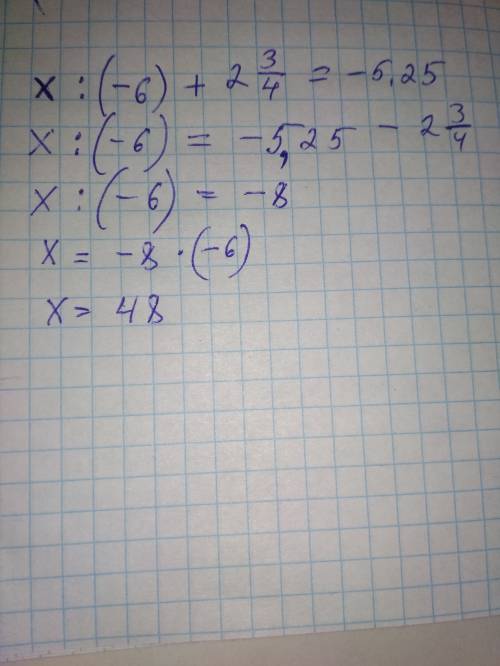 x : (-6) + 2 3/4 = -5.25
x : (-6) = -5,25 - 2 3/4
x : (-6) = -8
x = -8 · (-6)
x = 48